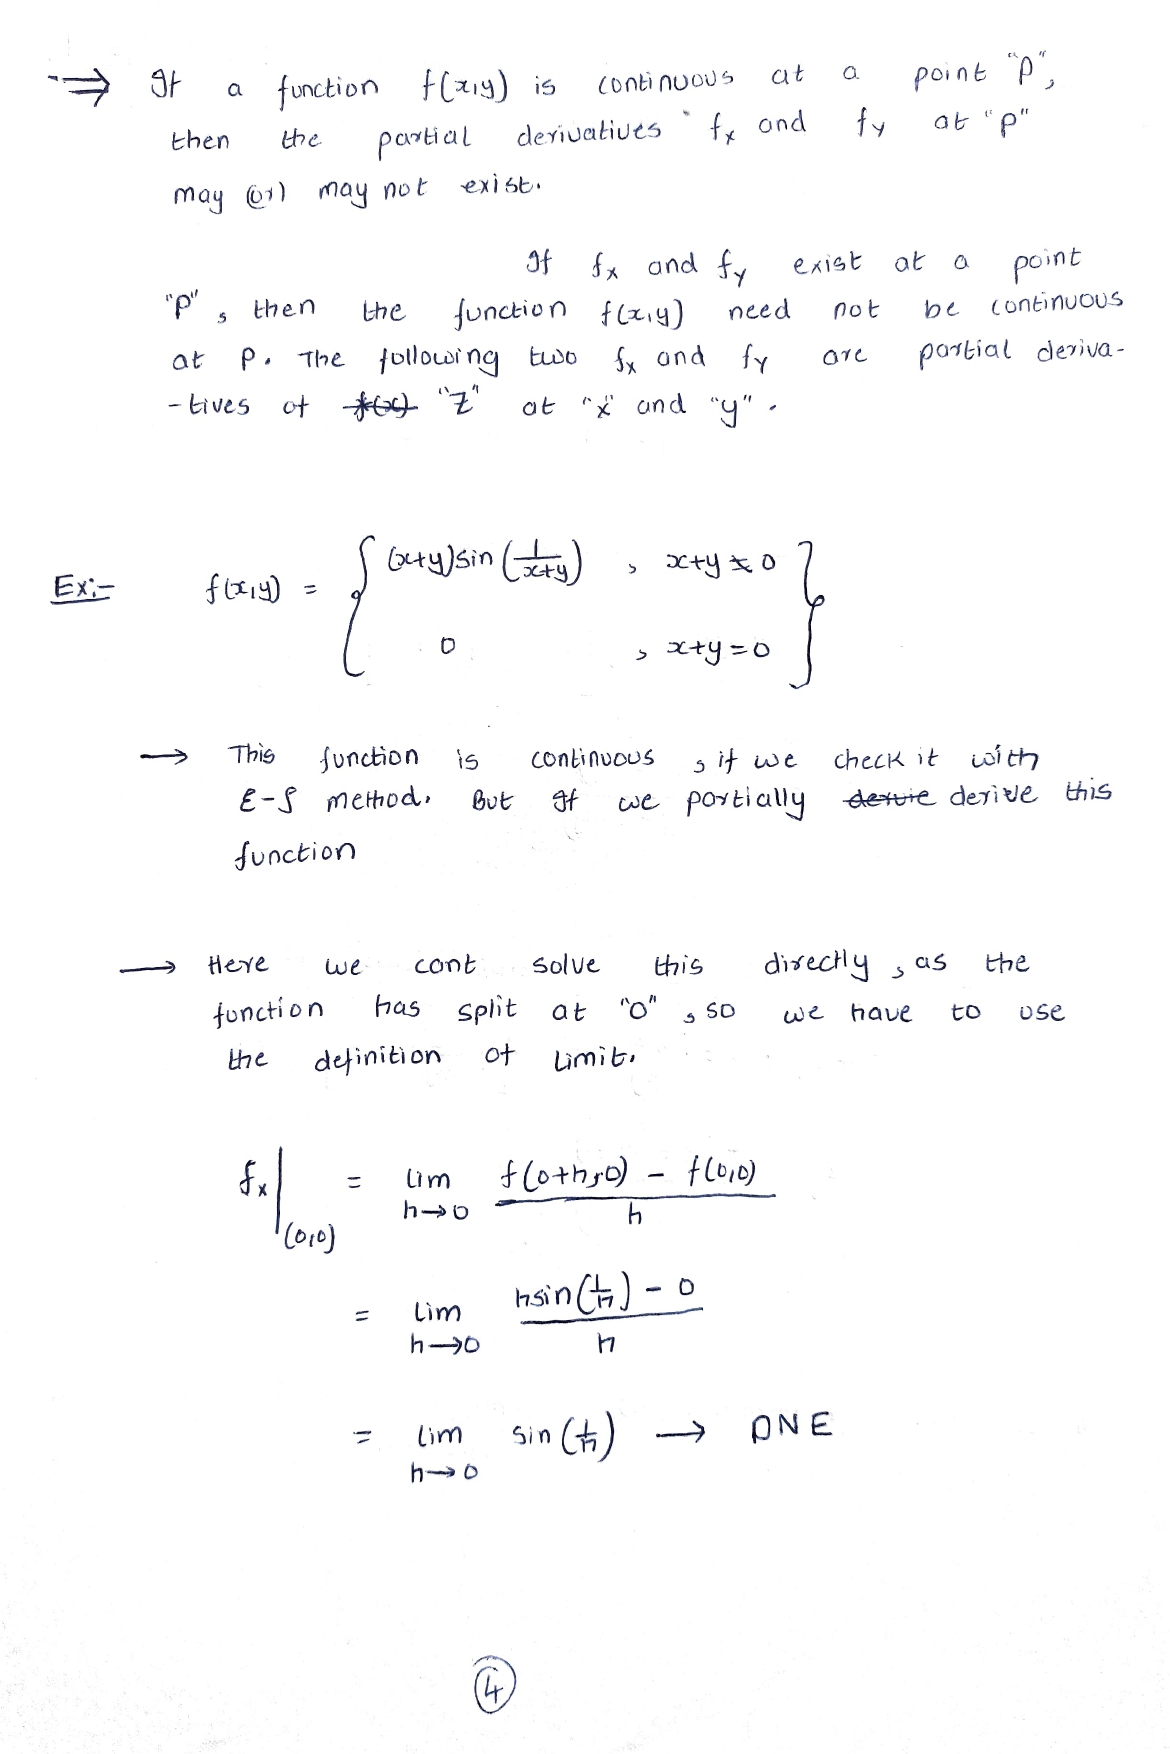 ⇒ If a function f(x,y) is continuous at a point "p",
then the partial derivatives fx and fy at "p"
may (or) may not exist.
If fx and fy exist at a point
"p", then the function f(x,y) need not be continuous
at p. The following two fx and fy are partial deriva-
-tives of f(x) "Z" at "x" and "y".
Ex:- f(x,y) = { (x+y)sin(1/(x+y)) , x+y ≠ 0 }
0 , x+y=0
→ This function is continuous, if we check it with
ε-δ method. But If we partially deruie derive this
function
→ Here we cant solve this directly, as the
function has split at "0", so we have to use
the definition of Limit.
fx|(0,0) = lim h→0 (f(0+h,0) - f(0,0))/h
= lim h→0 (hsin(1/h) - 0)/h
= lim h→0 sin(1/h) → DNE
4